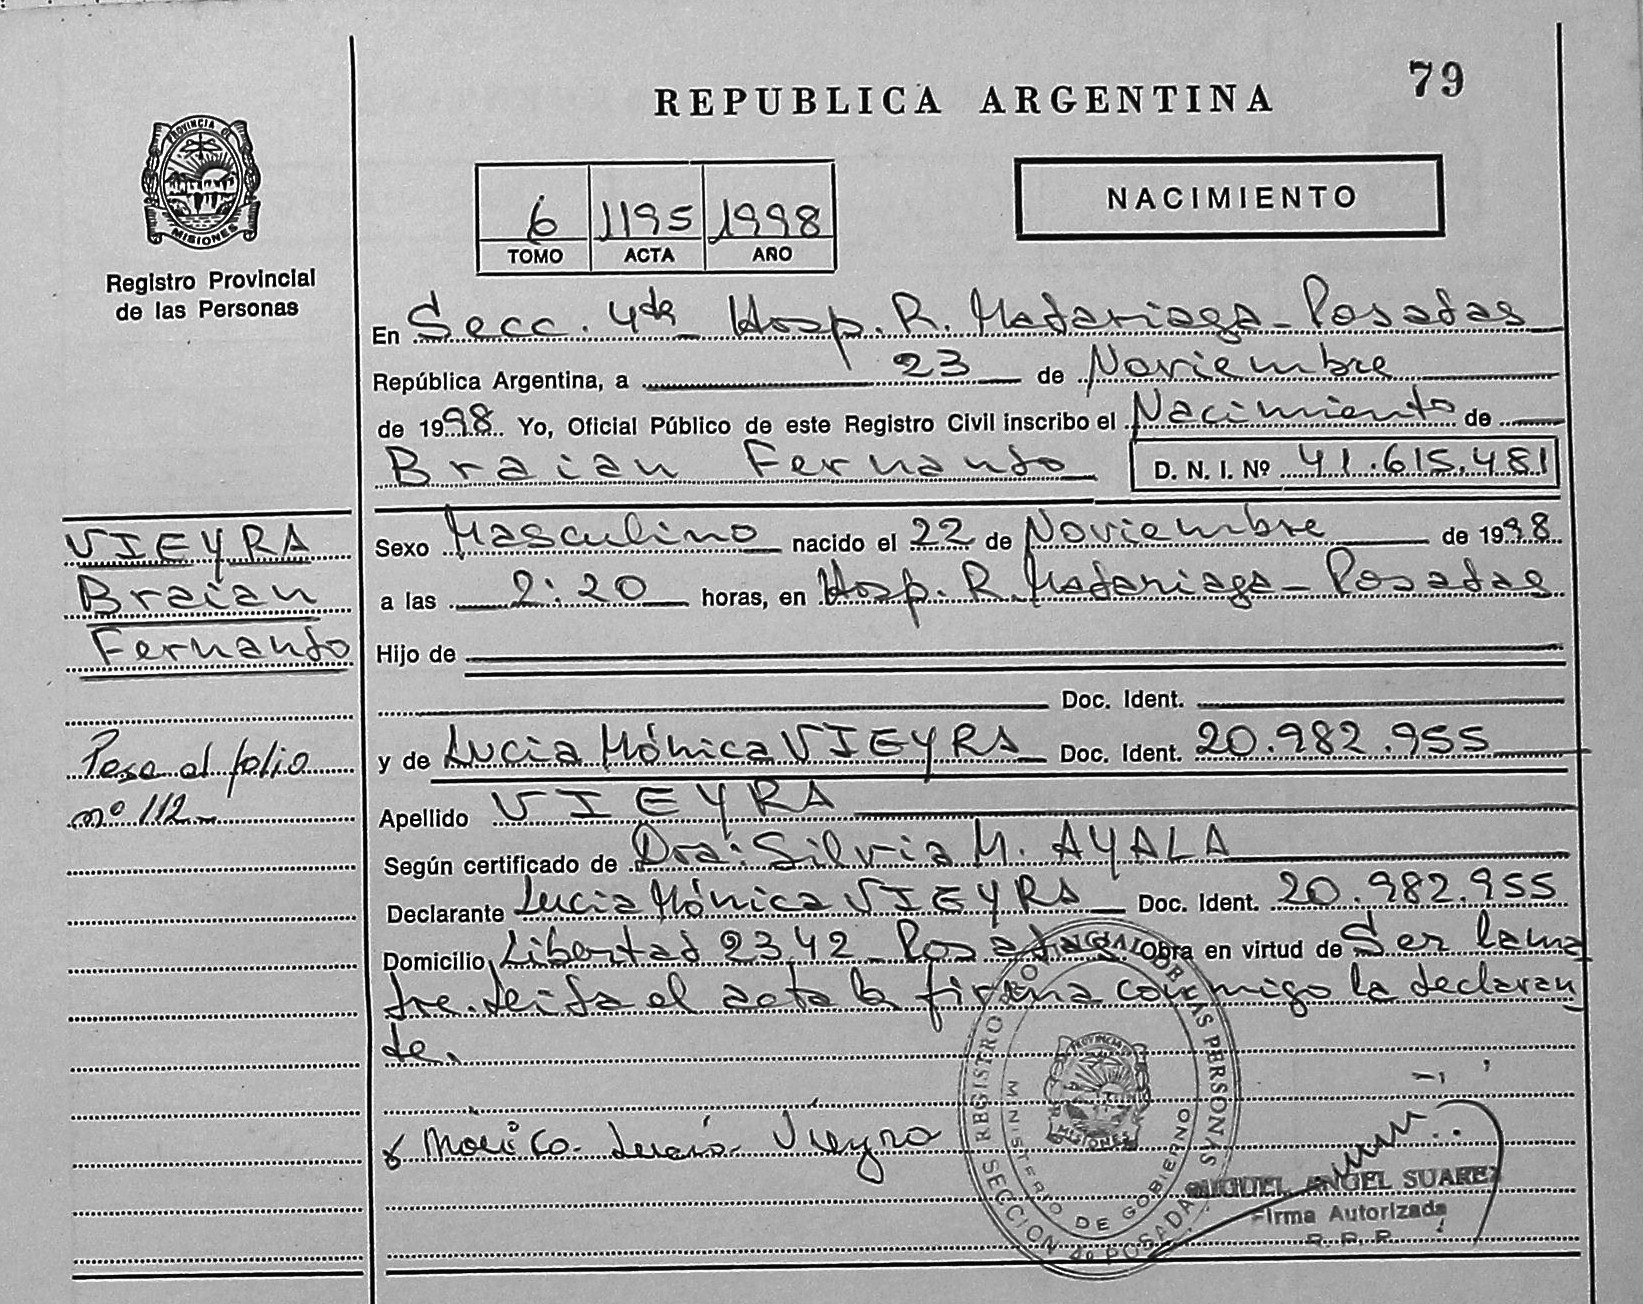 79
REPUBLICA ARGENTINA
PROVINCIA DE
MISIONES
Registro Provincial
de las Personas
6 1195 1998
TOMO ACTA AÑO
NACIMIENTO
En Secc. 4da Hosp. R. Madariaga - Posadas
República Argentina, a 23 de Noviembre
de 1998 Yo, Oficial Público de este Registro Civil inscribo el Nacimiento de
Braian Fernando D. N. I. Nº 41.615.481
VIEYRA
Braian
Fernando
Sexo Masculino nacido el 22 de Noviembre de 1998
a las 2:20 horas, en Hosp. R. Madariaga - Posadas
Hijo de
Doc. Ident.
Pasa al folio
nº 112-
y de Lucia Mónica VIEYRA Doc. Ident. 20.982.955
Apellido VIEYRA
Según certificado de Dra: Silvia M. AYALA
Declarante Lucia Mónica VIEYRA Doc. Ident. 20.982.955
Domicilio Libertad 2342 - Posadas. Obra en virtud de Ser la ma
dre. Leida el acta la firma conmigo la declaran
te.
Monica Lucia Vieyra
REGISTRO PROVINCIAL DE LAS PERSONAS
MINISTERIO DE GOBIERNO
MISIONES
SECCION 4a POSADAS
MIGUEL ANGEL SUAREZ
Firma Autorizada
R. P. P.